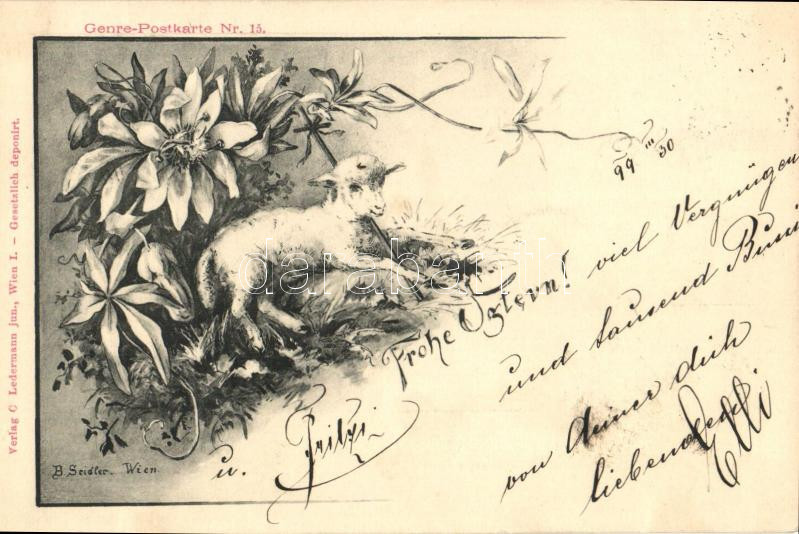 Genre-Postkarte Nr. 15.
Verlag C Ledermann jun., Wien I. – Gesetzlich deponirt.
99 III 30
Frohe Ostern!
viel Vergnügen
und tausend
von deiner dich
liebenden Elli
u. Fritzi
B. Seidler. Wien.
darabanth